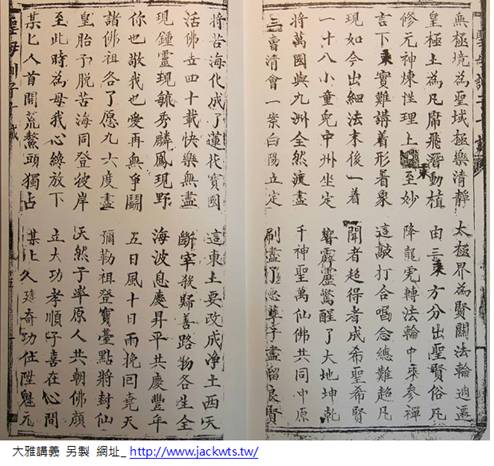 無極境為聖域極樂清靜　太極界為賢關法輪逍遙
皇極土為凡屌飛潛動植　由三乘方分出聖賢俗凡
修元神煉性理上乘至妙　降龍虎轉法輪中乘參禪
言下乘實難講着形着象　這敲打合唱念總難超凡
現如今出細法末後一着　聞者超得者成希聖希賢
一十八小童兒中洲坐定　響霹靂驚醒了大地坤乾
將萬國與九洲全然渡盡　千神聖萬仙佛共同中原
三會清會一宗白陽立定　刷盡了惡孽子盡留良賢
將苦海化成了蓮花寶國　這東土要改成淨土西天
活佛女四十載快樂無盡　斷宰殺歸善路物各生全
現鍾靈現毓秀麟鳳現野　海波息慶昇平共慶豐年
你也敬我也愛再無爭鬪　五日風十日雨挽回堯天
諸佛祖各了愿九六度盡　彌勒祖登寶臺點將封仙
皇胎子脫苦海同登彼岸　天然子率原人共朝佛顏
至此時為母我心纔放下　立大功孝順子喜在心間
某乜人首開荒鰲頭獨占　某乜人建奇功位陞魁元
聖母訓子十誡
大雅講義 另製 網址_ http://www.jackwts.tw/